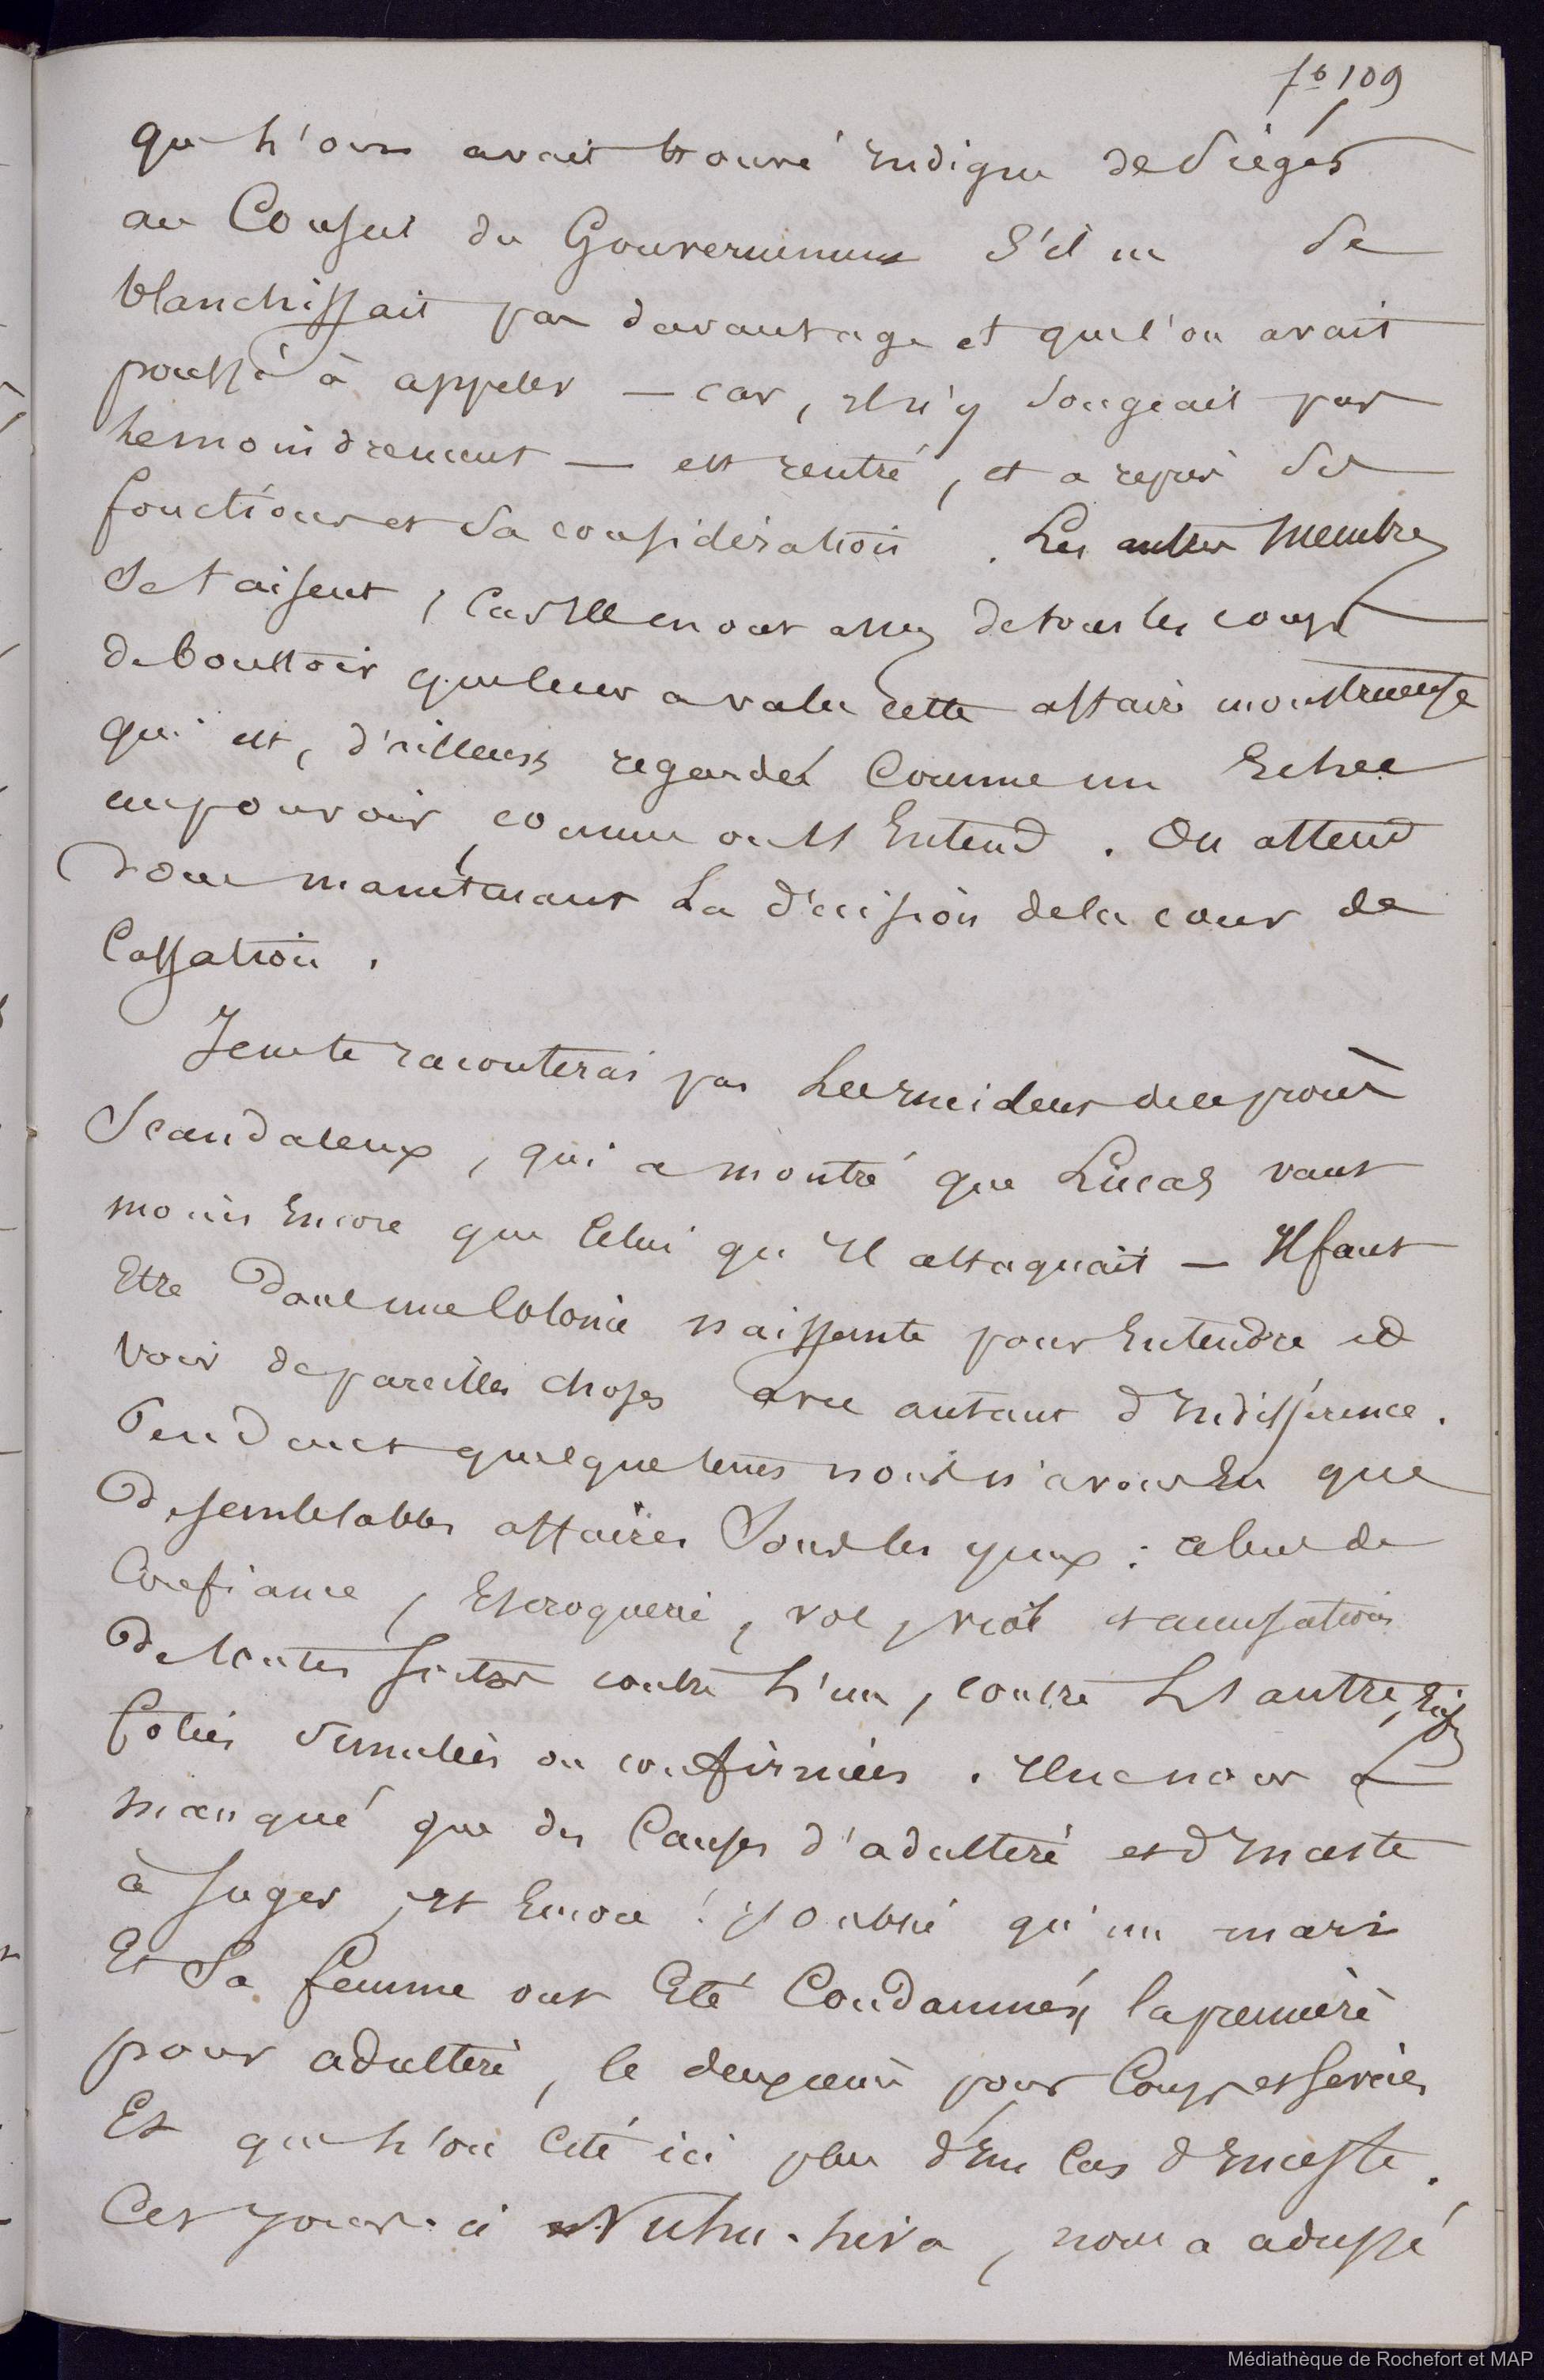 fo 109
que l'on avait trouvé indigne de siéger
au Conseil du Gouvernement s'il ne se
blanchissait pas davantage et que l'on avait
poussé à appeler — car, il n'y songeait pas
le moindrement — est rentré, et a repris ses
fonctions et sa considération. Les autres membres
se taisent, car ils en ont assez de tous les coups
de bouttoir que leur a valu cette affaire monstrueuse
qui est, d'ailleurs regardée comme un Echec
au pouvoir, comme on l'Entend. On attend
donc maintenant La décision de la cour de
Cassation.
Je ne te raconterai pas les incidents de ce procès
Scandaleux, qui a montré que Lucas vaut
moins Encore que Celui qu'Il attaquait — Il faut
Etre Dans une Colonie naissante pour Entendre et
voir de pareilles choses avec autant d'Indifférence.
Pendant quelque tems nous n'avons Eu que
De semblables affaires Sous les yeux : abus de
Confiance, Escroquerie, vol, viol et accusations
De toutes sortes contre L'un, contre L'autre,
folies simulées ou confirmées. Il ne nous a
manqué que des Causes d'adultère et d'Inceste
à Juger, et Encore ! J'oublie qu'un mari
Et Sa femme ont Eté Condamnés, la première
pour adultère, le deuxième pour Coups et sévices
Et que l'on Cite ici plus d'un Cas d'Inceste.
Ces jours-ci Nuhu-hiva, nous a adressé
Médiathèque de Rochefort et MAP